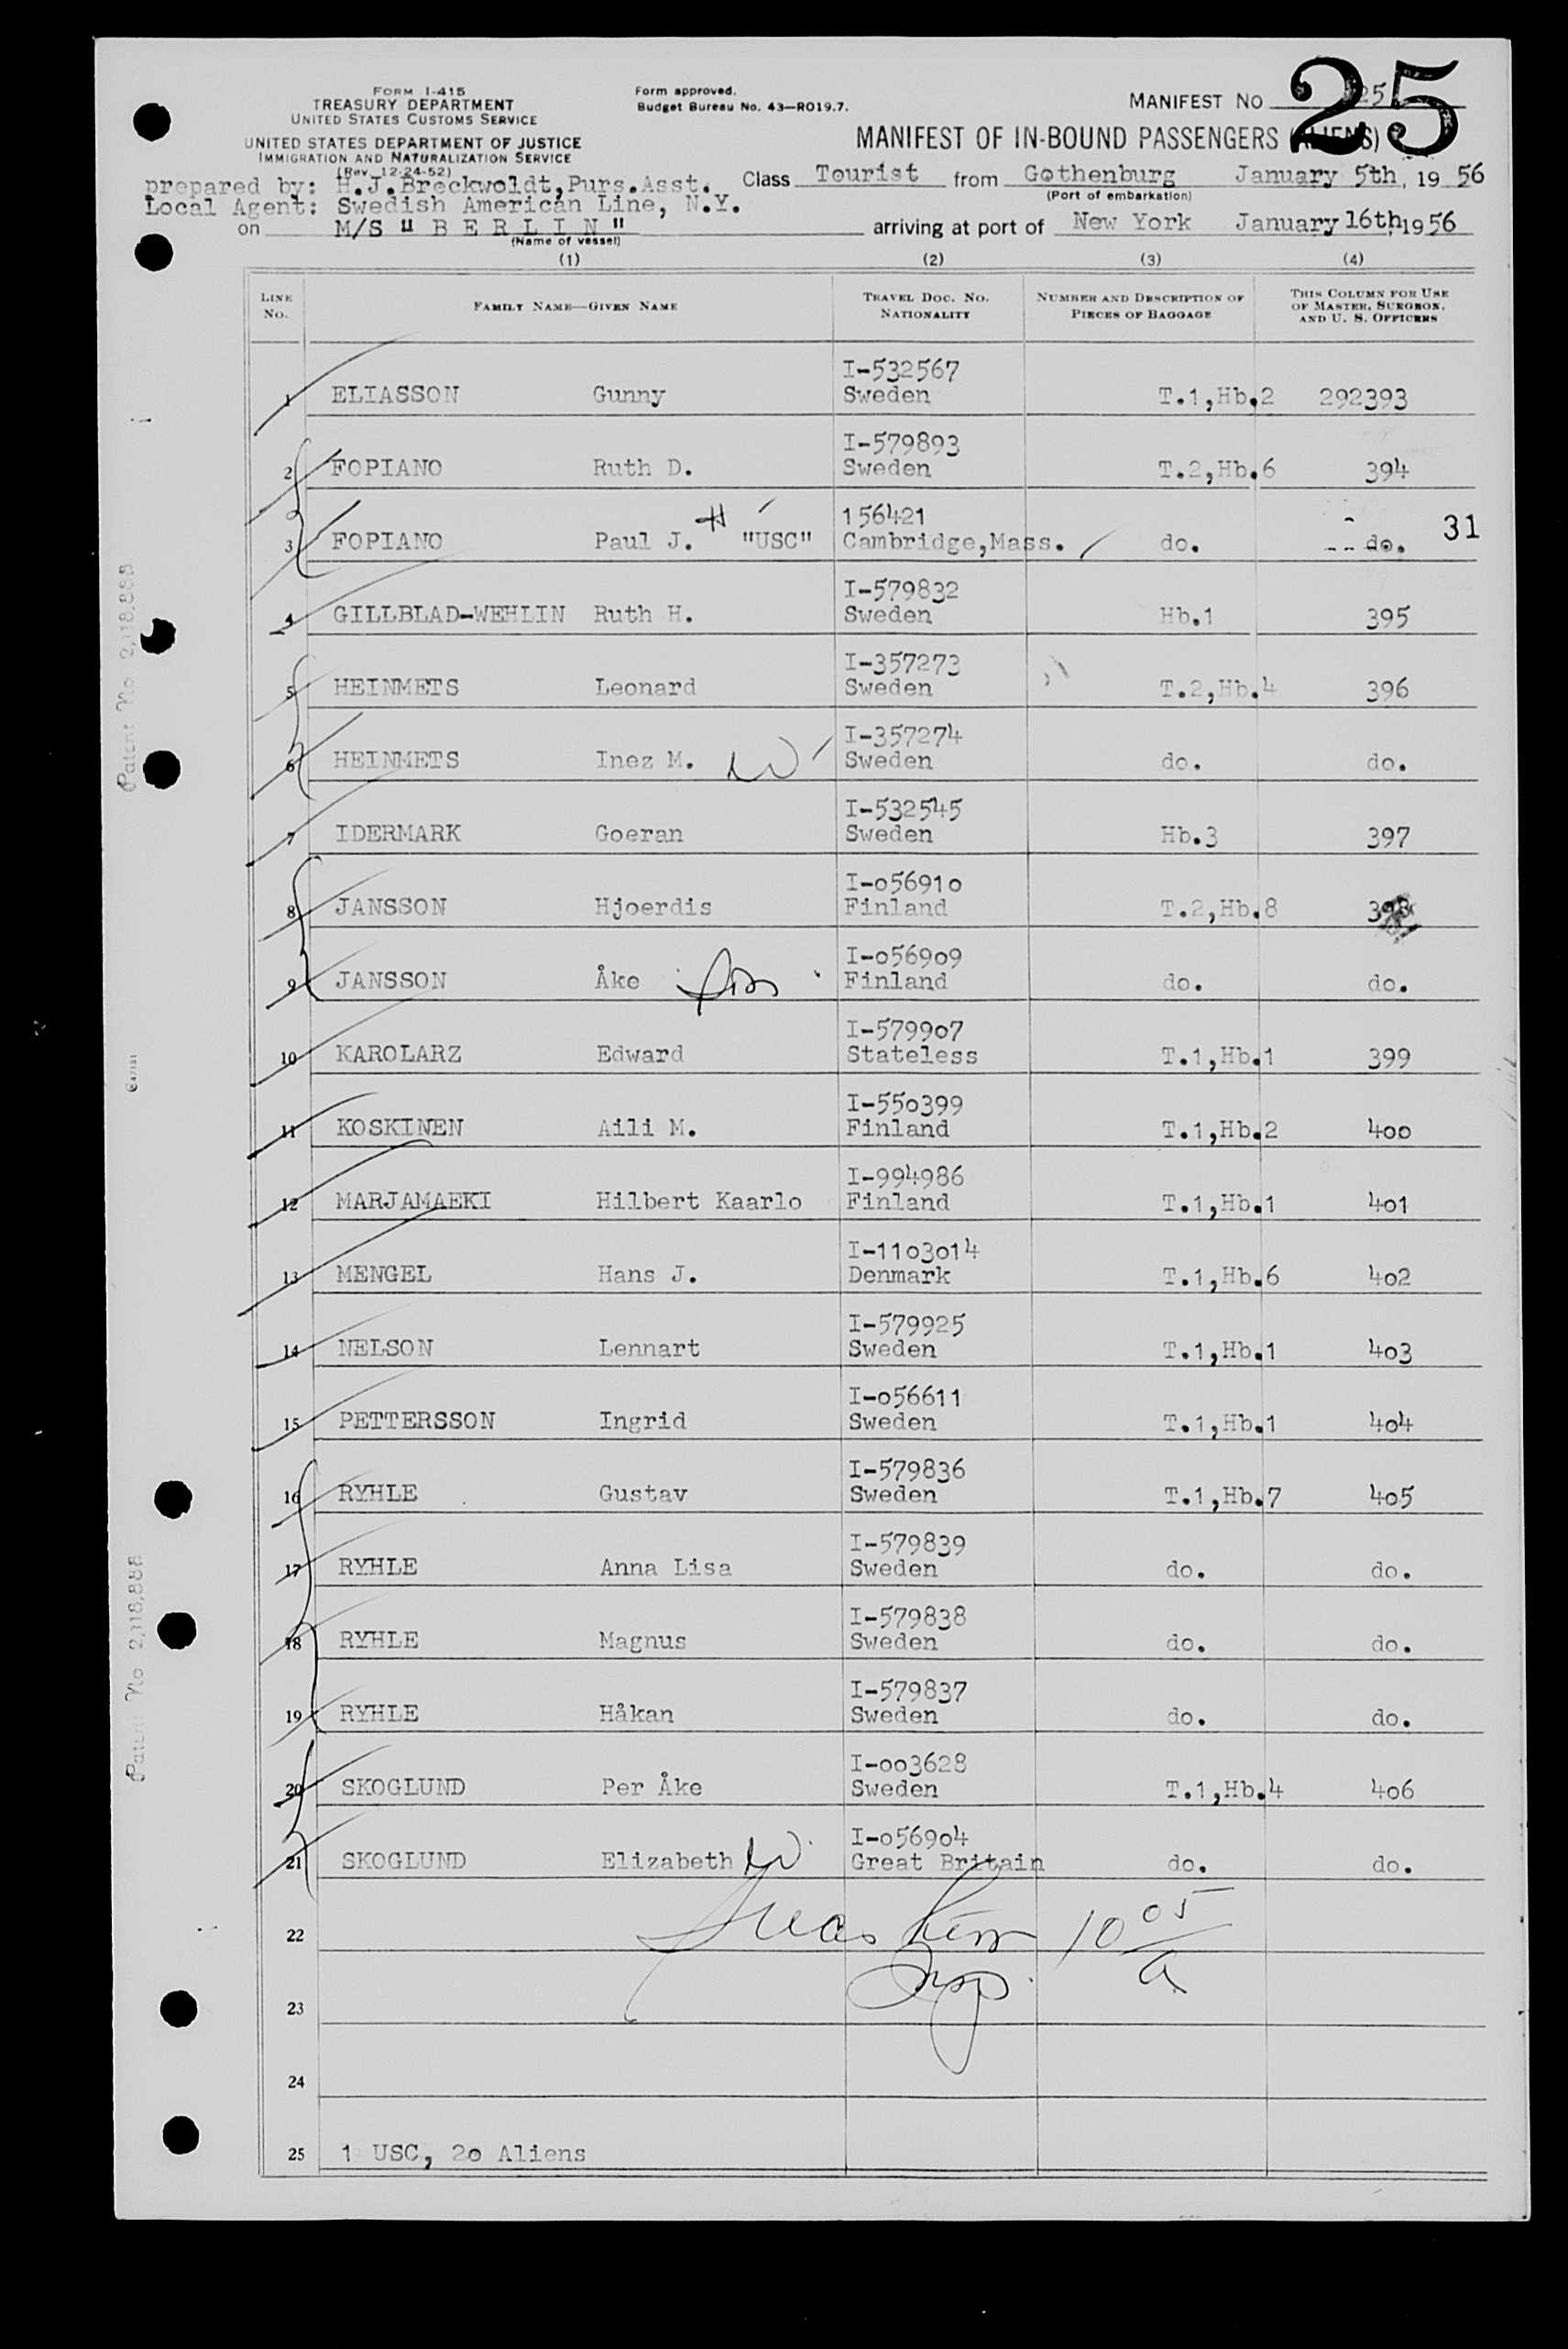 25
FORM I-415
TREASURY DEPARTMENT
UNITED STATES CUSTOMS SERVICE
UNITED STATES DEPARTMENT OF JUSTICE
IMMIGRATION AND NATURALIZATION SERVICE
(Rev. 12-24-52)
Form approved.
Budget Bureau No. 43—RO19.7.
MANIFEST NO 25
MANIFEST OF IN-BOUND PASSENGERS (ALIENS)
prepared by: H.J.Breckwoldt,Purs.Asst. Class Tourist from Gothenburg January 5th, 19 56
(Port of embarkation)
Local Agent: Swedish American Line, N.Y.
on M/S " B E R L I N " arriving at port of New York January 16th, 19 56
(Name of vessel)
(1) (2) (3) (4)
LINE NO. FAMILY NAME—GIVEN NAME TRAVEL DOC. NO. NATIONALITY NUMBER AND DESCRIPTION OF PIECES OF BAGGAGE THIS COLUMN FOR USE OF MASTER, SURGEON, AND U. S. OFFICERS
I-532567
1 ELIASSON Gunny Sweden T.1,Hb.2 292393
I-579893
2 FOPIANO Ruth D. Sweden T.2,Hb.6 394
156421 31
3 FOPIANO Paul J. "USC" Cambridge,Mass. do. do.
I-579832
4 GILLBLAD-WEHLIN Ruth H. Sweden Hb.1 395
I-357273
5 HEINMETS Leonard Sweden T.2,Hb.4 396
I-357274
6 HEINMETS Inez M. W Sweden do. do.
I-532545
7 IDERMARK Goeran Sweden Hb.3 397
I-056910
8 JANSSON Hjoerdis Finland T.2,Hb.8 398
I-056909
9 JANSSON Åke Finland do. do.
I-579907
10 KAROLARZ Edward Stateless T.1,Hb.1 399
I-550399
11 KOSKINEN Aili M. Finland T.1,Hb.2 400
I-994986
12 MARJAMAEKI Hilbert Kaarlo Finland T.1,Hb.1 401
I-1103014
13 MENGEL Hans J. Denmark T.1,Hb.6 402
I-579925
14 NELSON Lennart Sweden T.1,Hb.1 403
I-056611
15 PETTERSSON Ingrid Sweden T.1,Hb.1 404
I-579836
16 RYHLE Gustav Sweden T.1,Hb.7 405
I-579839
17 RYHLE Anna Lisa Sweden do. do.
I-579838
18 RYHLE Magnus Sweden do. do.
I-579837
19 RYHLE Håkan Sweden do. do.
I-003628
20 SKOGLUND Per Åke Sweden T.1,Hb.4 406
I-056904
21 SKOGLUND Elizabeth W Great Britain do. do.
22 10 05/a
23 Insp.
24
25 1 USC, 20 Aliens
Patent No 2,118,888
Patent No 2,118,888